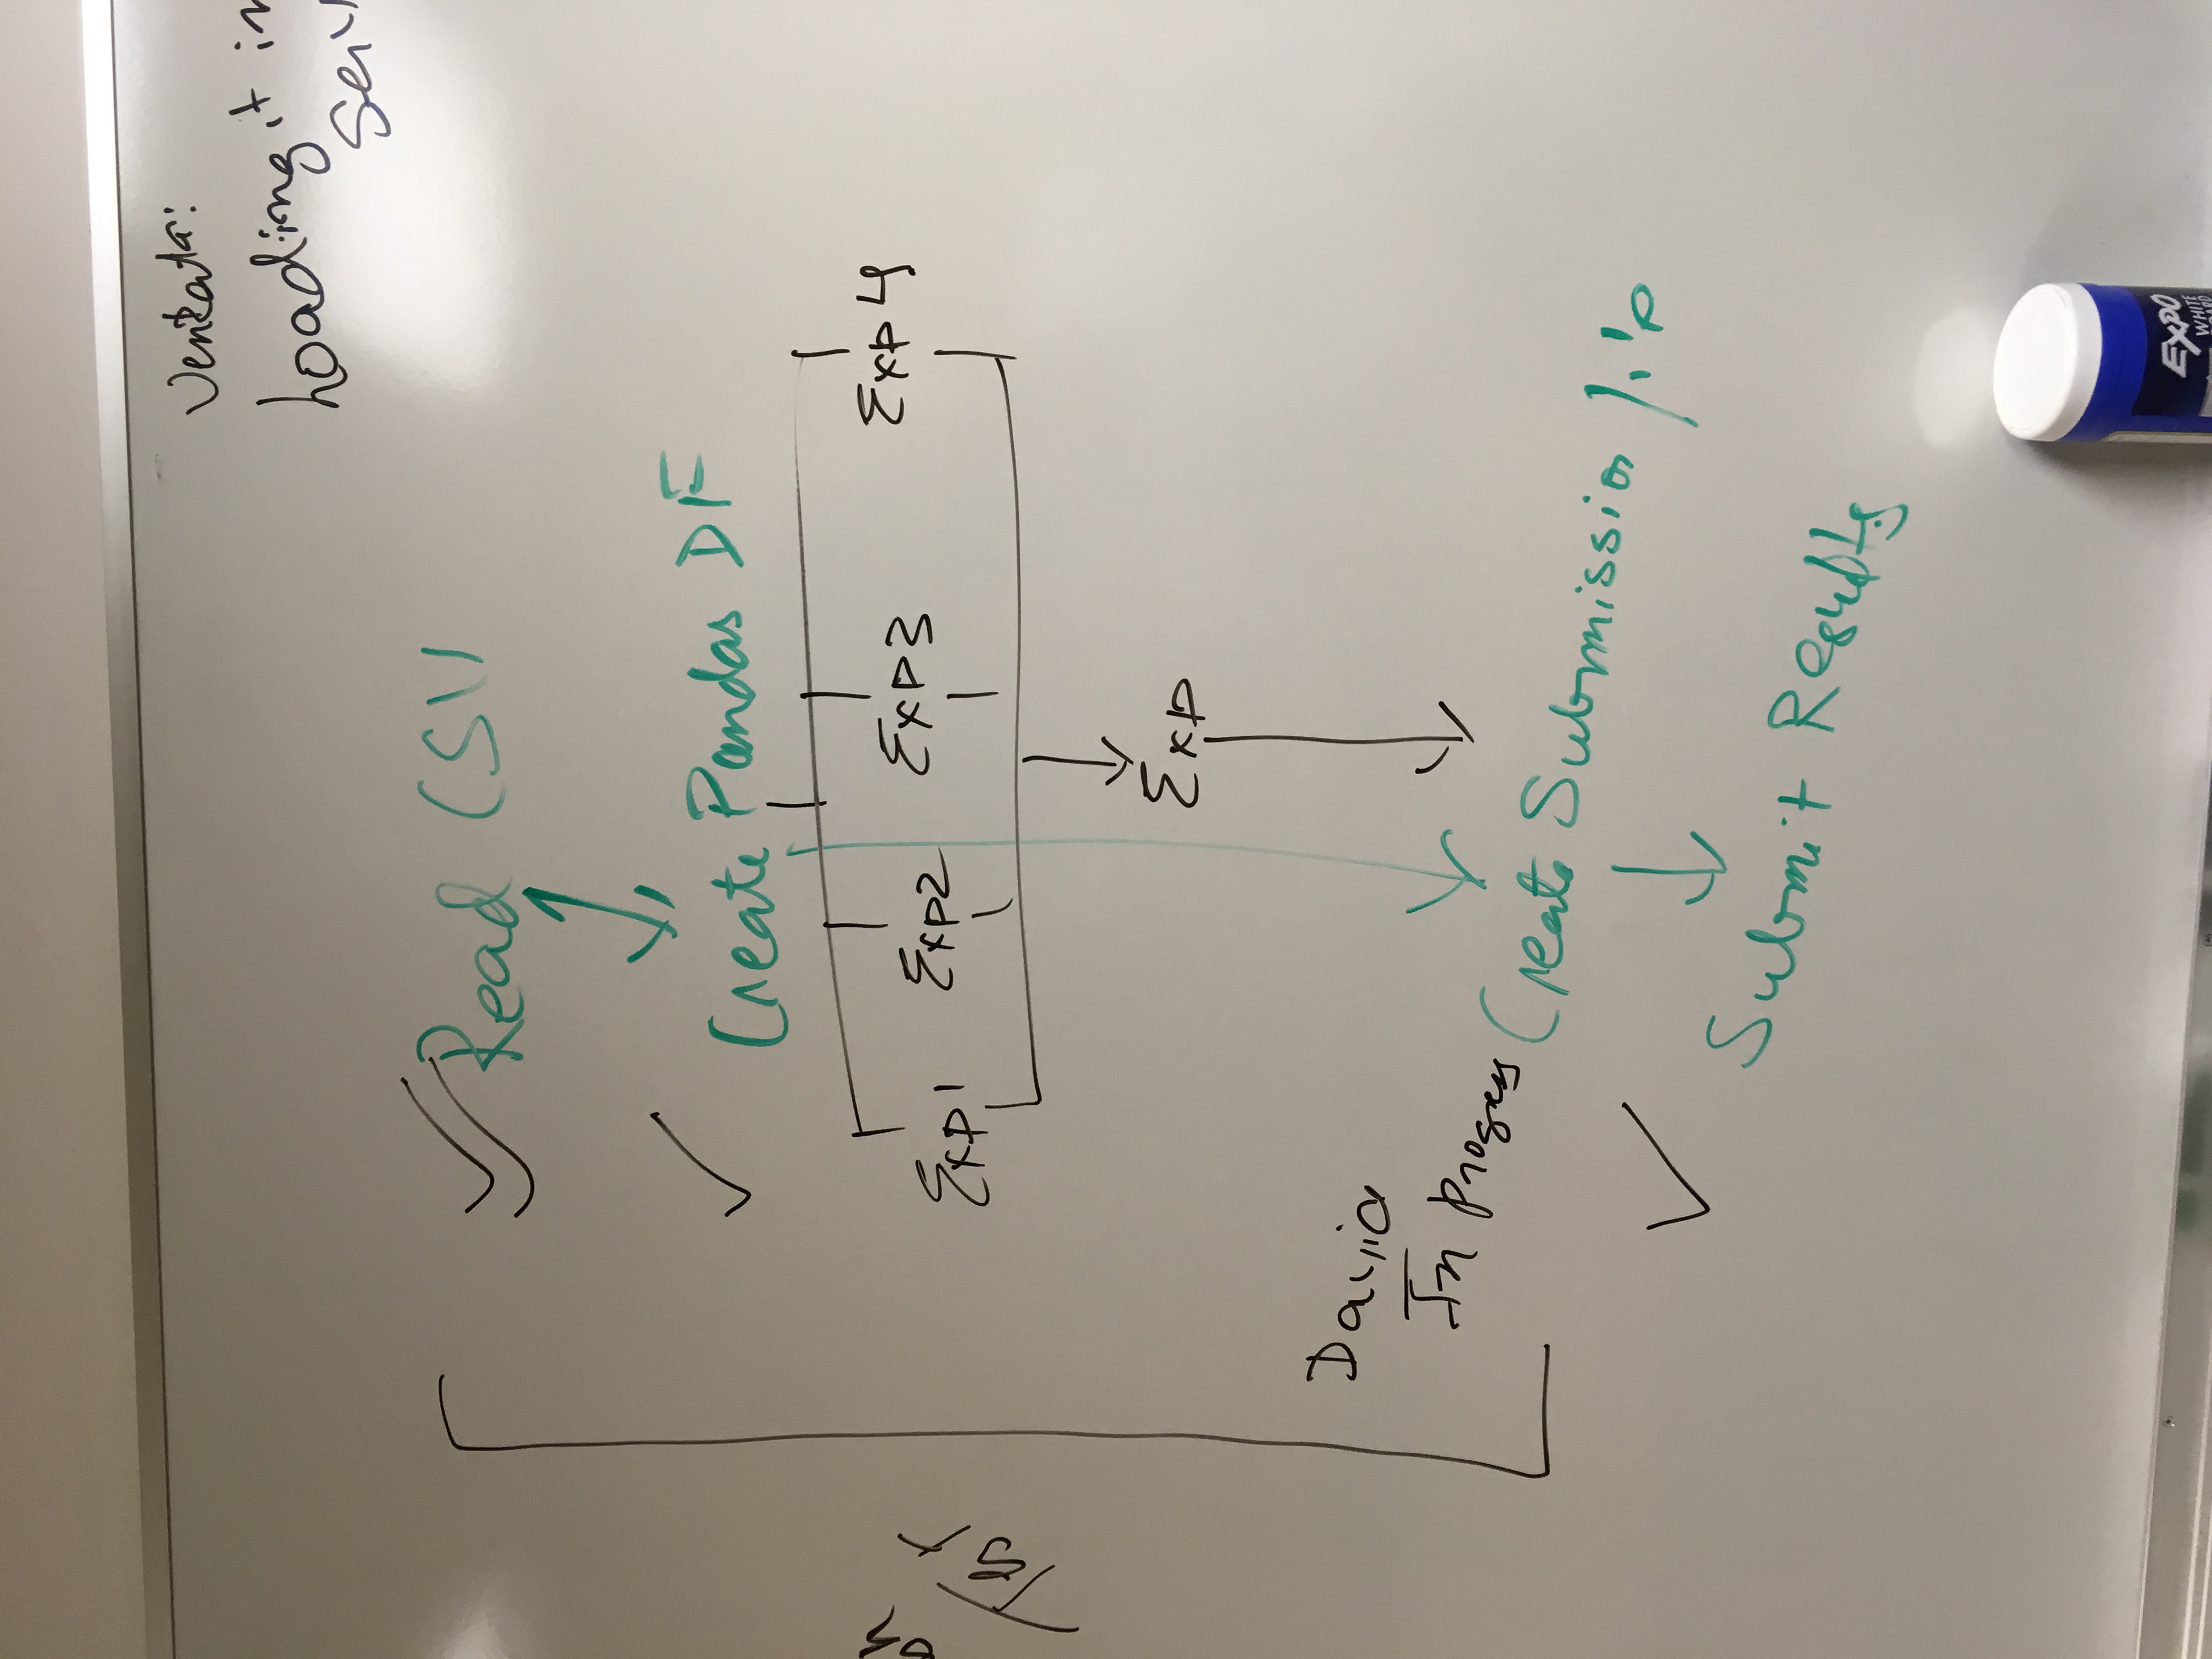 Venkata:
Loading it in
Read CSV
Create Pandas DF
Exp1 Exp2 Exp3 Exp4
Exp
David
In Progress
Create Submission
Submit Results
Test
EXPO
WHITE